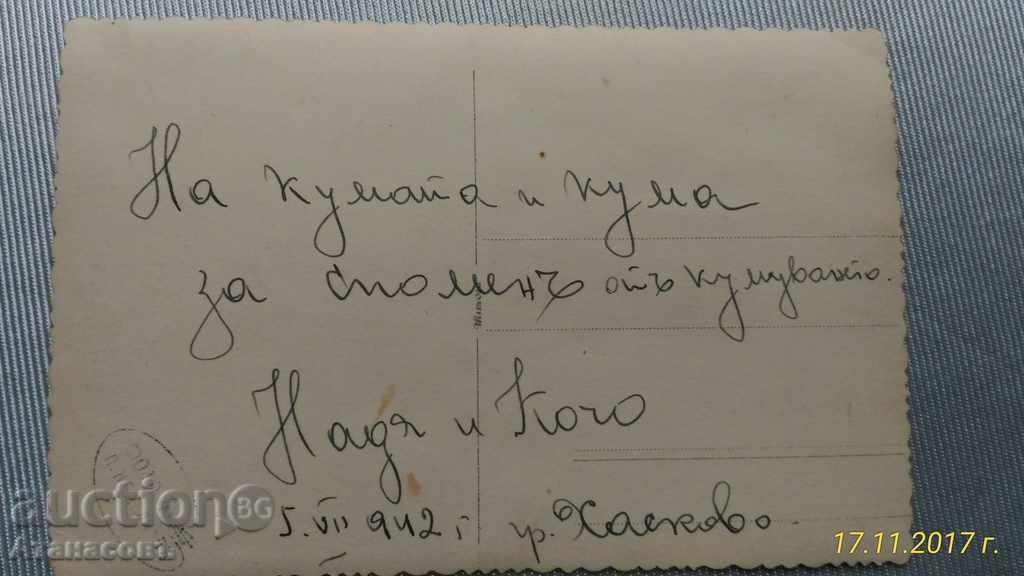 На кумата и кума
за споменъ отъ кумуването.
Надя и Кочо
5. VII 942 г. гр. Хасково.
auctionBG
Атанасовъ
17.11.2017 г.